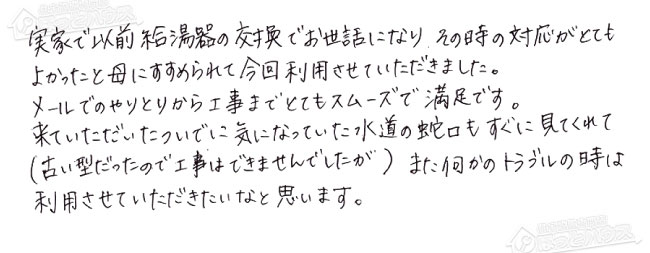 実家で以前給湯器の交換でお世話になり その時の対応がとても
よかったと母にすすめられて今回利用させていただきました。
メールでのやりとりから工事までとてもスムーズで満足です。
来ていただいたついでに気になっていた水道の蛇口もすぐに見てくれて
(古い型だったので工事はできませんでしたが) また何かのトラブルの時は
利用させていただきたいなと思います。